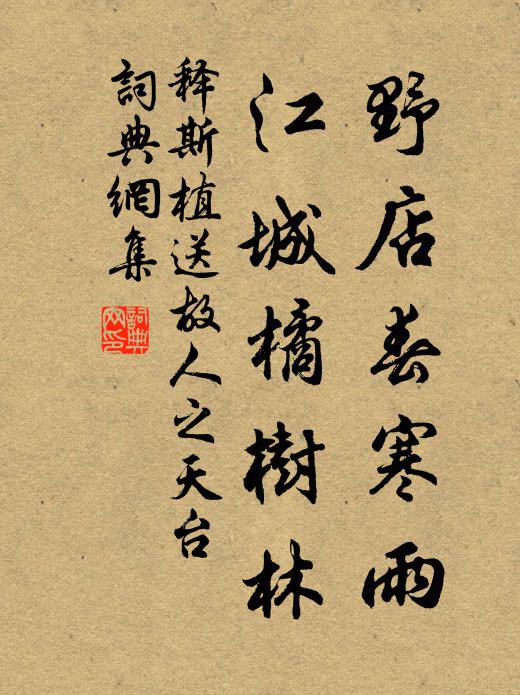 野店春寒雨
江城橘樹林
释斯植送故人之天台
詞典網集
詞典網印